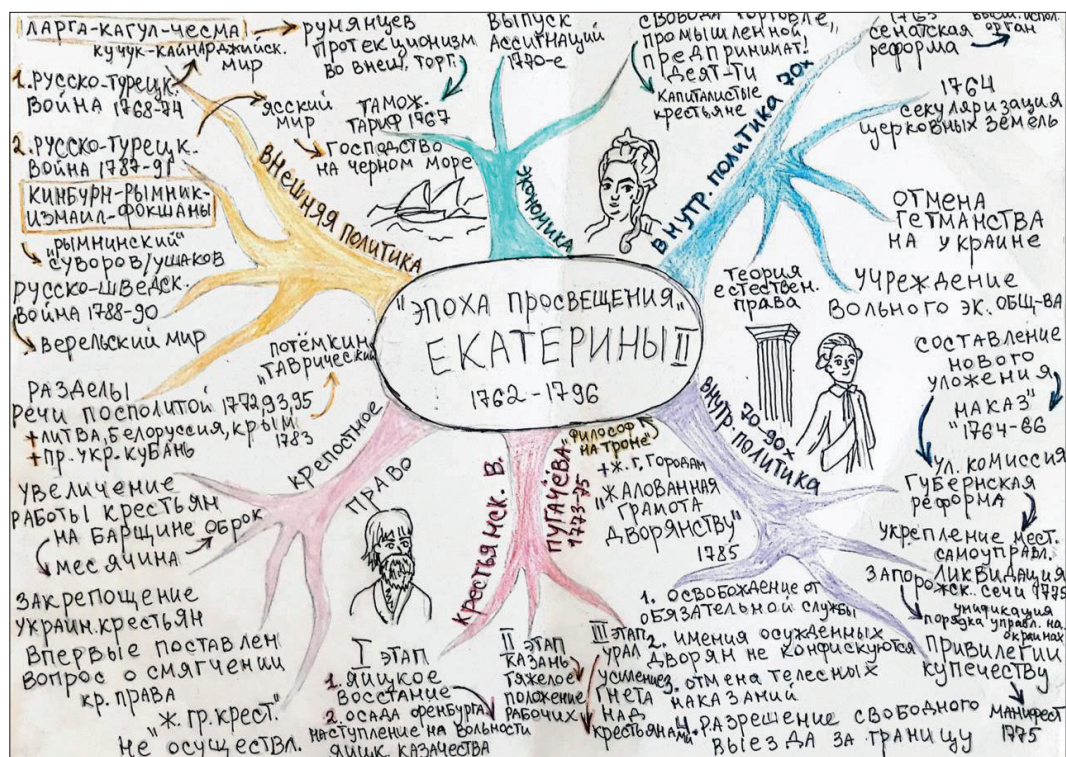 ЛАРГА-КАГУЛ-ЧЕСМА
КУЧУК-КАЙНАРДЖИЙСК.
МИР
1. РУССКО-ТУРЕЦК.
ВОЙНА 1768-74
ЯССКИЙ
МИР
2. РУССКО-ТУРЕЦК.
ВОЙНА 1787-91
КИНБУРН-РЫМНИК-
ИЗМАИЛ-ФОКШАНЫ
"РЫМНИНСКИЙ"
СУВОРОВ/УШАКОВ
РУССКО-ШВЕДСК.
ВОЙНА 1788-90
ВЕРЕЛЬСКИЙ МИР
РУМЯНЦЕВ
ГОСПОДСТВО
НА ЧЕРНОМ МОРЕ
ПОТЁМКИН
"ТАВРИЧЕСКИЙ"
РАЗДЕЛЫ
РЕЧИ ПОСПОЛИТОЙ 1772,93,95
+ЛИТВА, БЕЛОРУССИЯ, КРЫМ,
1783
+ПР. УКР. КУБАНЬ
ВНЕШНЯЯ ПОЛИТИКА
ПРОТЕКЦИОНИЗМ
ВО ВНЕШ. ТОРГ.
ТАМОЖ.
ТАРИФ 1767
ВЫПУСК
АССИГНАЦИЙ
1770-е
СВОБОДА ТОРГОВЛЕ,
ПРОМЫШЛЕННОЙ
ПРЕДПРИНИМАТ!
ДЕЯТ-ТИ
КАПИТАЛИСТЫЕ
КРЕСТЬЯНЕ
ЭКОНОМИКА
ВНУТР. ПОЛИТИКА 70х
1763
СЕНАТСКАЯ
РЕФОРМА
ВЫСШ. ИСПОЛ.
ОРГАН
1764
СЕКУЛЯРИЗАЦИЯ
ЦЕРКОВНЫХ ЗЕМЕЛЬ
ОТМЕНА
ГЕТМАНСТВА
НА УКРАИНЕ
УЧРЕЖДЕНИЕ
ВОЛЬНОГО ЭК. ОБЩ-ВА
ТЕОРИЯ
ЕСТЕСТВЕН.
ПРАВА
СОСТАВЛЕНИЕ
НОВОГО
УЛОЖЕНИЯ
"НАКАЗ"
1764-66
УЛ. КОМИССИЯ
"ЭПОХА ПРОСВЕЩЕНИЯ"
ЕКАТЕРИНЫ II
1762-1796
"ФИЛОСОФ
НА ТРОНЕ"
ВНУТР. ПОЛИТИКА
70-90х
ГУБЕРНСКАЯ
РЕФОРМА
УКРЕПЛЕНИЕ МЕСТ.
САМОУПРАВЛ.
ЛИКВИДАЦИЯ
ЗАПОРОЖСК. СЕЧИ 1775
УНИФИКАЦИЯ
ПОРЯДКА УПРАВЛ. НА
ОКРАИНАХ
ПРИВИЛЕГИИ
КУПЕЧЕСТВУ
МАНИФЕСТ
1775
+Ж.Г. ГОРОДАМ
"ЖАЛОВАННАЯ
ГРАМОТА
ДВОРЯНСТВУ"
1785
1. ОСВОБОЖДЕНИЕ ОТ
ОБЯЗАТЕЛЬНОЙ СЛУЖБЫ
2. ИМЕНИЯ ОСУЖДЕННЫХ
ДВОРЯН НЕ КОНФИСКУЮТСЯ
3. ОТМЕНА ТЕЛЕСНЫХ
НАКАЗАНИЙ
4. РАЗРЕШЕНИЕ СВОБОДНОГО
ВЫЕЗДА ЗА ГРАНИЦУ
КРЕСТЬЯНСК. В.
ПУГАЧЁВА
1773-75
I ЭТАП
1. ЯИЦКОЕ
ВОССТАНИЕ
2. ОСАДА ОРЕНБУРГА
НАСТУПЛЕНИЕ НА ВОЛЬНОСТИ
ЯИЦК. КАЗАЧЕСТВА
II ЭТАП
КАЗАНЬ
ТЯЖЕЛОЕ
ПОЛОЖЕНИЕ
РАБОЧИХ
III ЭТАП
УРАЛ
УСИЛЕНИЕ
ГНЕТА
НАД
КРЕСТЬЯНАМИ
КРЕПОСТНОЕ
ПРАВО
УВЕЛИЧЕНИЕ
РАБОТЫ КРЕСТЬЯН
НА БАРЩИНЕ ОБРОК
МЕСЯЧИНА
ЗАКРЕПОЩЕНИЕ
УКРАИН. КРЕСТЬЯН
ВПЕРВЫЕ ПОСТАВЛЕН
ВОПРОС О СМЯГЧЕНИИ
КР. ПРАВА
"Ж. ГР. КРЕСТ."
НЕ ОСУЩЕСТВЛ.